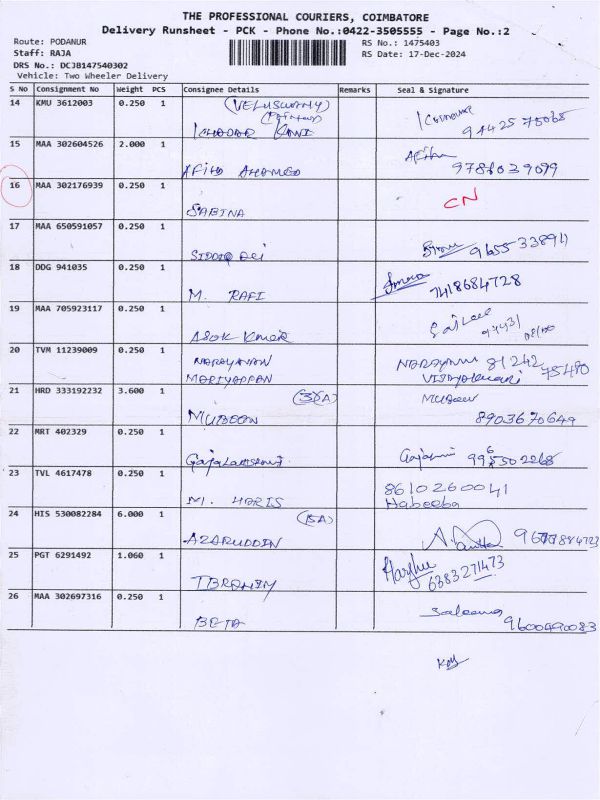 THE PROFESSIONAL COURIERS, COIMBATORE
Delivery Runsheet - PCK - Phone No.:0422-3505555 - Page No.:2
Route: PODANUR RS No.: 1475403
Staff: RAJA RS Date: 17-Dec-2024
DRS No.: DCJB147540302
Vehicle: Two Wheeler Delivery
S No Consignment No Weight PCS Consignee Details Remarks Seal & Signature
14 KMU 3612003 0.250 1 (VELUSWAMY)
15 MAA 302604526 2.000 1
AFILD AHAMED 9787039099
16 MAA 302176939 0.250 1 CN
SABINA
17 MAA 650591057 0.250 1
SIDDIQ ALI 9655338911
18 DDG 941035 0.250 1
M. RAFI 7418684728
19 MAA 705923117 0.250 1
ASOK KMAR
20 TVM 11239009 0.250 1 NARAYANAN 81242
MARIYAPPAN 75480
21 HRD 333192232 3.600 1 MUBEEN
MUBEEN 8903670649
22 MRT 402329 0.250 1
23 TVL 4617478 0.250 1 8610260041
M. HARIS Habeeba
24 HIS 530082284 6.000 1 (5A)
AZARUDDIN
25 PGT 6291492 1.060 1
IBRAHIM 6383271473
26 MAA 302697316 0.250 1
BETA 9600490083